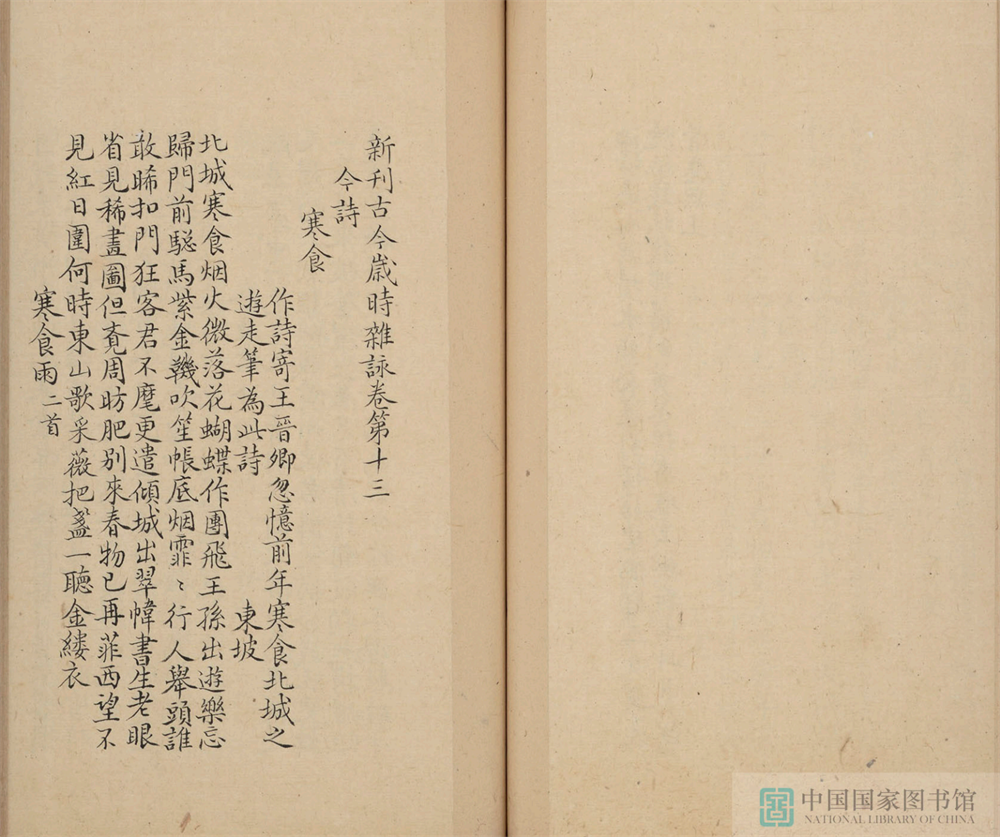 新刊古今歲時雜詠卷第十三
今詩
寒食
作詩寄王晉卿忽憶前年寒食北城之
遊走筆為此詩 東坡
北城寒食烟火微落花蝴蝶作團飛王孫出遊樂忘
歸門前驄馬紫金鞿吹笙帳底烟霏〻行人舉頭誰
敢睎扣門狂客君不麾更遣傾城出翠幃書生老眼
省見稀畫圖但覔周昉肥別來春物已再菲西望不
見紅日圍何時東山歌采薇把盞一聽金縷衣
寒食雨二首
中国国家图书馆
NATIONAL LIBRARY OF CHINA